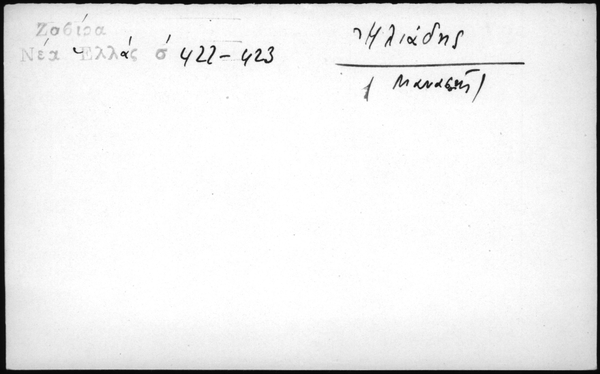 Ζαβίρα
Νέα Ἑλλάς σ 422-423
Ἠλιάδης
(Μανασσῆς)